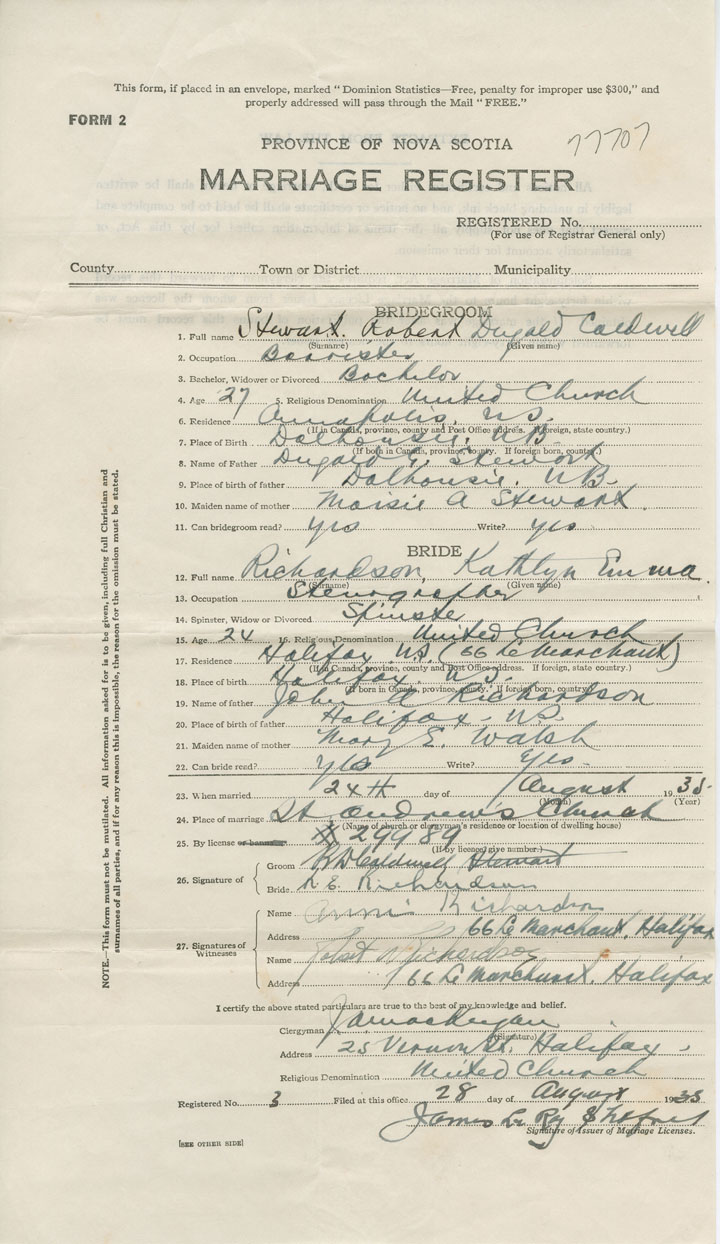 This form, if placed in an envelope, marked "Dominion Statistics—Free, penalty for improper use $300," and
properly addressed will pass through the Mail "FREE."
FORM 2
77707
PROVINCE OF NOVA SCOTIA
MARRIAGE REGISTER
REGISTERED No.
(For use of Registrar General only)
County Town or District Municipality
BRIDEGROOM
1. Full name Stewart. Robert Dugald Caldwell
(Surname) (Given name)
2. Occupation Barrister
3. Bachelor, Widower or Divorced Bachelor
4. Age 27 5. Religious Denomination United Church
6. Residence Annapolis, N.S.
(If in Canada, province, county and Post Office address. If foreign, state country.)
7. Place of Birth Dalhousie, N.B.
(If born in Canada, province, county. If foreign born, country.)
8. Name of Father Dugald Stewart
9. Place of birth of father Dalhousie. N.B.
10. Maiden name of mother Maisie A Stewart
11. Can bridegroom read? yes Write? yes
BRIDE
12. Full name Richardson, Kathlyn Emma
(Surname) (Given name)
13. Occupation Stenographer
14. Spinster, Widow or Divorced Spinster
15. Age 24 16. Religious Denomination United Church
17. Residence Halifax N.S. (66 Le Marchant)
(If in Canada, province, county and Post Office address. If foreign, state country.)
18. Place of birth Halifax. N.S.
(If born in Canada, province, county. If foreign born, country.)
19. Name of father John Richardson
20. Place of birth of father Halifax - N.S.
21. Maiden name of mother Mary E. Walsh
22. Can bride read? yes Write? yes
23. When married 24th day of August 1935
(Month) (Year)
24. Place of marriage St Andrew's Church
(Name of church or clergyman's residence or location of dwelling house)
25. By license or banns # 29989
(If by license, give number.)
26. Signature of
Groom Caldwell Stewart
Bride K. E. Richardson
27. Signatures of Witnesses
Name Annie Richardson
Address 66 Le Marchant, Halifax
Name Richardson
Address 66 Le Marchant, Halifax
I certify the above stated particulars are true to the best of my knowledge and belief.
Clergyman
(Signature)
Address 25 Vernon St. Halifax.
Religious Denomination United Church
Registered No. 3 Filed at this office 28 day of August 1935
James Le Roy
Signature of Issuer of Marriage Licenses.
[SEE OTHER SIDE]
NOTE.—This form must not be mutilated. All information asked for is to be given, including full Christian and
surnames of all parties, and if for any reason this is impossible, the reason for the omission must be stated.